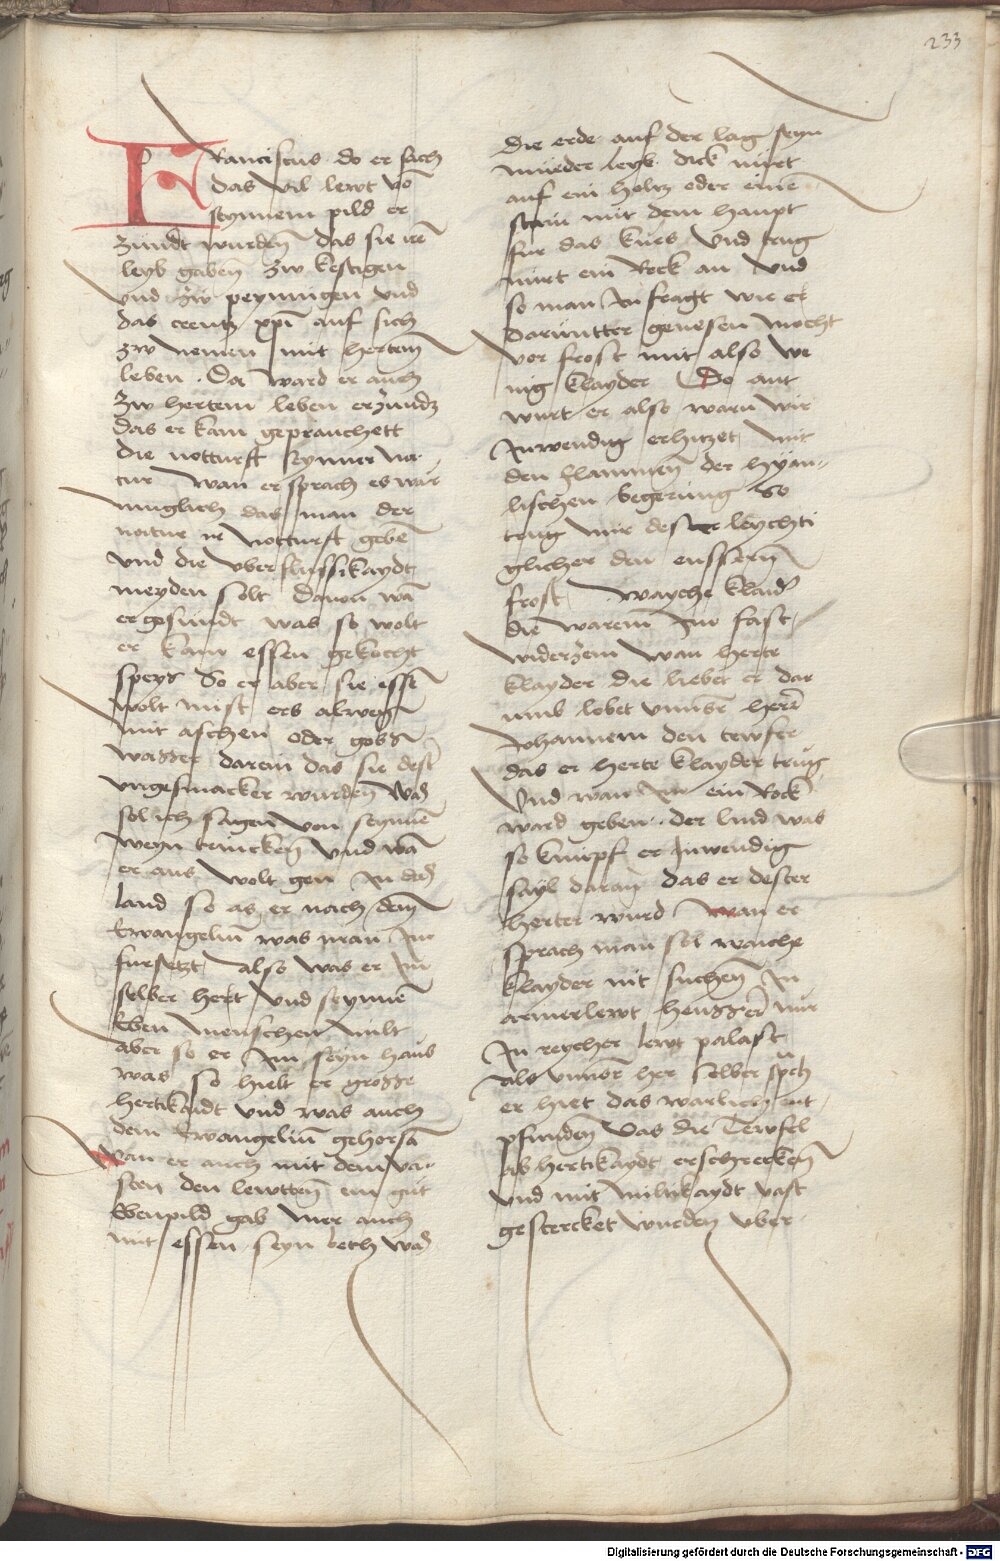 233
Franciscus do er sach
das vil lewt võ
seynnem pild er
zündt wurdeñ das sie irẽ
leyb gabeñ zw kestigen
vnd zw peynnigen vnd
das creutz xpi auf sich
zw nemen mit hertem
leben . Da ward er auch
zw hertem leben erzündt
das er kam geprauchett
die notturft seynner na
tur wan er sprach es wär
müglich das man der
natur ir notturft gebẽ
vnd die vberflussikaydt
meyden solt Dauon wã
er gesundt was so wolt
er kam essen gekocht
speys So er aber sie essẽ
wolt mist ers alweg
mit aschen oder goss
wasser darein das sie dest
vngesmacker wurdeñ Was
sol ich sagen von seynnẽ
weyn trincken vnd wã
er aus wolt gen in die
land so as er nach dem
Ewangeliũ was man im
fursetzt also was er im
selber hert vnd seynnẽ
Eben menschen milt
aber so er im seyn haus
was so hielt er grosse
hertikaidt vnd was auch
dem Ewangeliũ gehorsã
wan er auch mit dem va
sten den lewtten ein gut
Ebenpild gab Mer auch
mit essen seyn beth was
Die erde auf der lag seyn
mueder leyb dick nurt
auf ein holtz oder einẽ
stain mit dem haupt
fur das kues vnd trug
nürt ein Rock an vnd
so man in fragt wie er
daruntter genesen mocht
vor frost mit also we
nig klayder Do ant
wurt er also warn wir
Inwendig erhitzet mit
den flammen der hym
lischen begerung So
trug mir dester leychti
glicher den eussern
frost wayche klaid
die warem im fast
widerzem wan herte
klayder die liebet er dar
umb lobet vnnser herr
Johannem den tewfer
das er herte klayder trug
Vnd wan im ein Rock
ward geben der lind was
so knüpf er Inwendig
sayl daran das er dester
herter wurd Wan er
sprach man sol waiche
klayder nit suchen in
armerlewt heusser nur
In reycher lewt palast
als vnnser her selber sprch
er hiet das warlich ent
pfunden Das die Tewfel
ab hertikaydt erschrecken
vnd mit miltikaydt vast
gestercket wurden vber
Digitalisierung gefördert durch die Deutsche Forschungsgemeinschaft - DFG